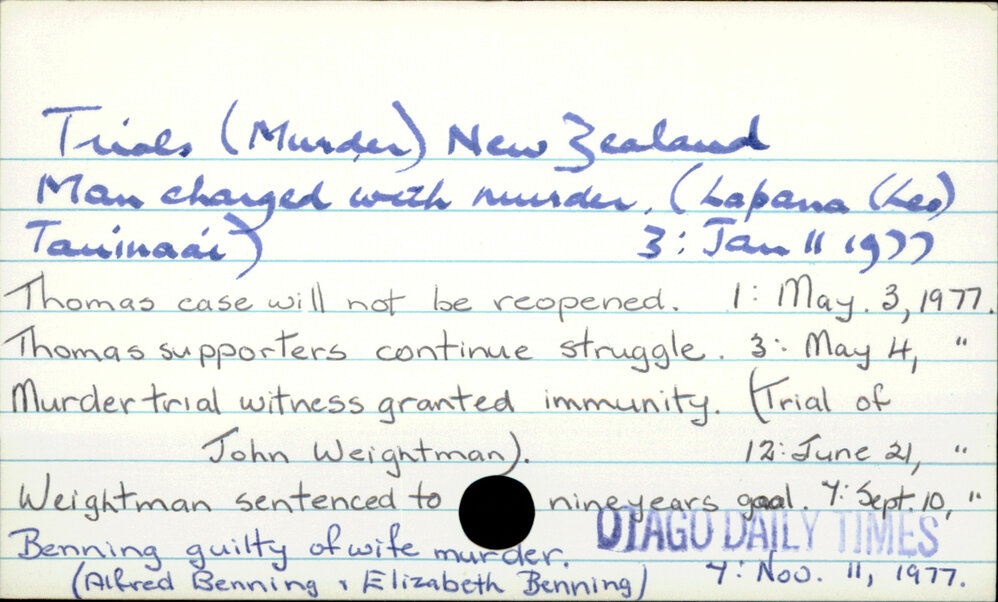 Trials (Murder) New Zealand
Man charged with murder. (Lapana (Leo)
Tauinaai) 3: Jan 11 1977
Thomas case will not be reopened. 1: May. 3, 1977.
Thomas supporters continue struggle. 3: May 4, "
Murder trial witness granted immunity. (Trial of
John Weightman). 12: June 21, "
Weightman sentenced to nine years goal. 7: Sept. 10, "
OTAGO DAILY TIMES
Benning guilty of wife murder.
(Alfred Benning & Elizabeth Benning) 7: Nov. 11, 1977.